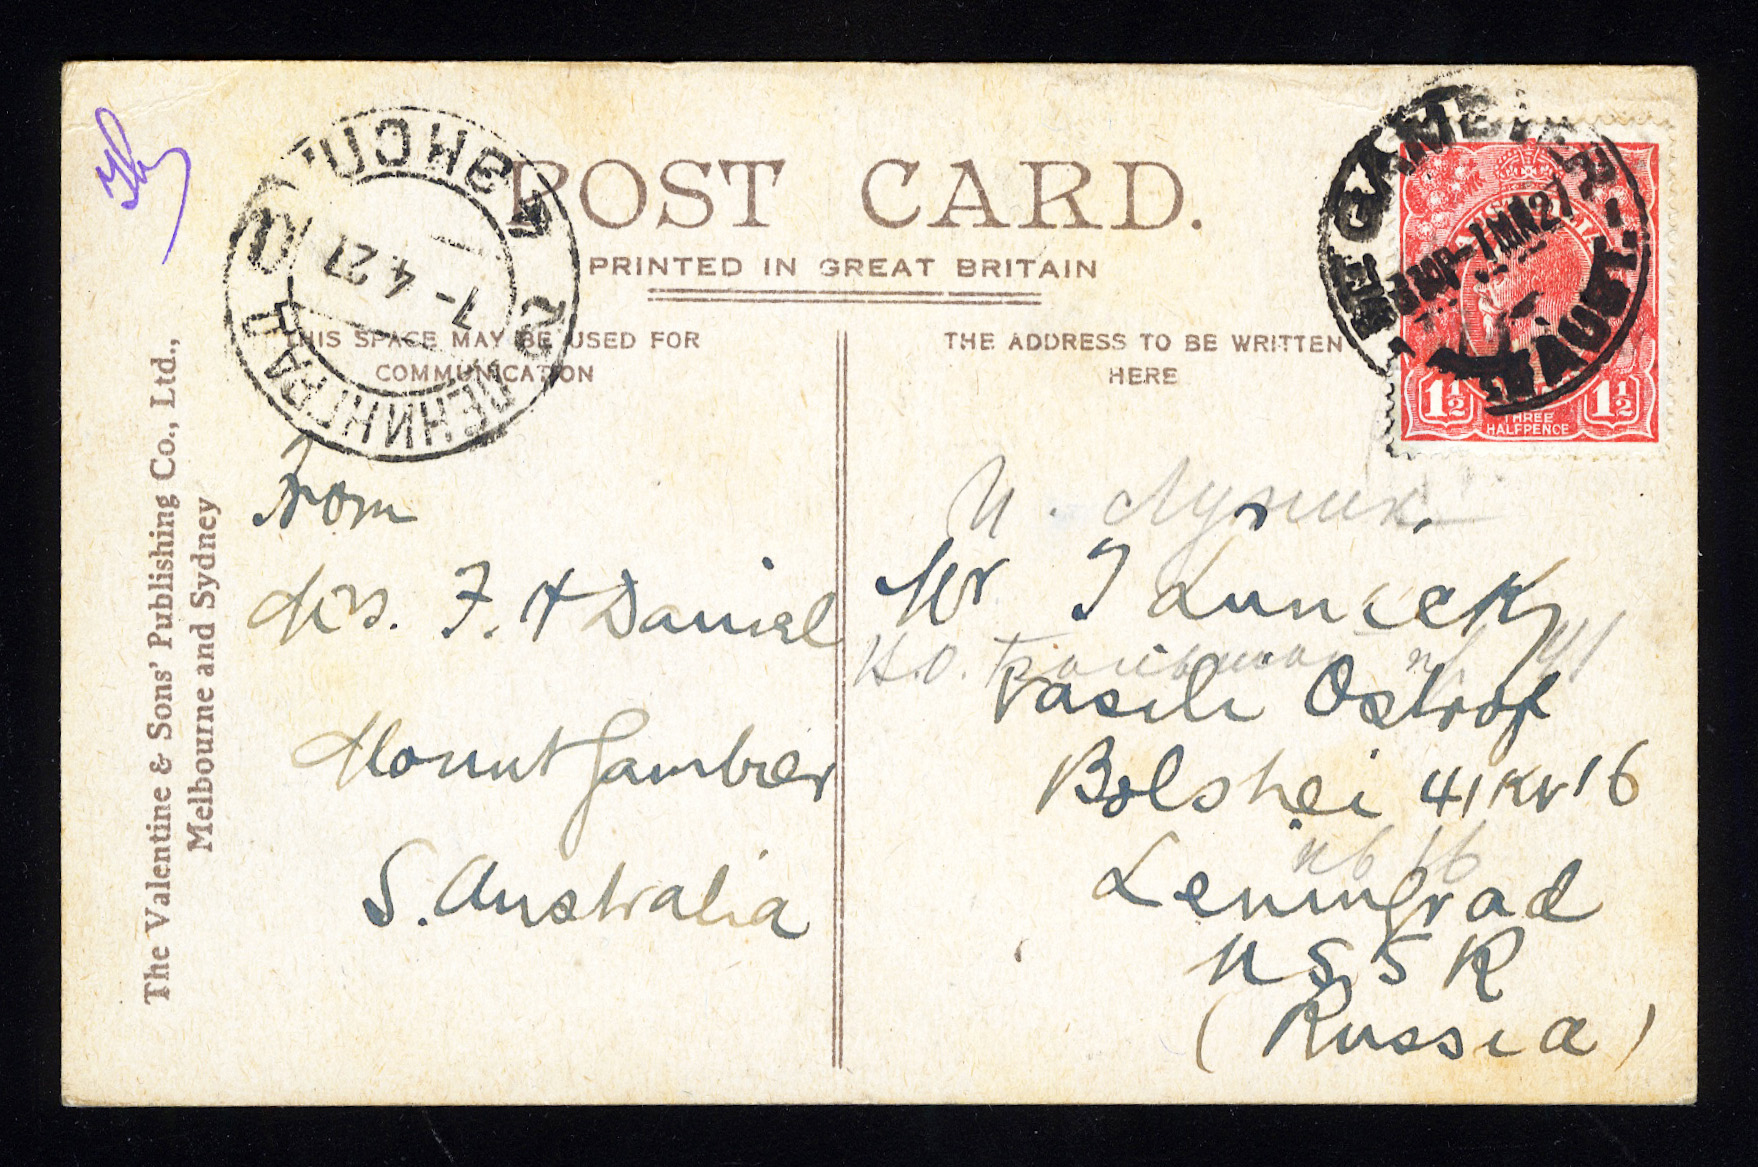 POST CARD.
PRINTED IN GREAT BRITAIN
THIS SPACE MAY BE USED FOR
COMMUNICATION
THE ADDRESS TO BE WRITTEN
HERE
The Valentine & Sons' Publishing Co., Ltd.,
Melbourne and Sydney
ЛЕНИНГРАД
7-4 27
MT GAMBIER
3 30P-1MR27
S.TH AUST.
1½ 1½
THREE
HALFPENCE
From
Mrs. F. H Daniel
Mount Gambier
S. Australia
Mr I Lunicck
Vasili Ostrof
Bolshei 41 Kv 16
Leningrad
USSR
(Russia)